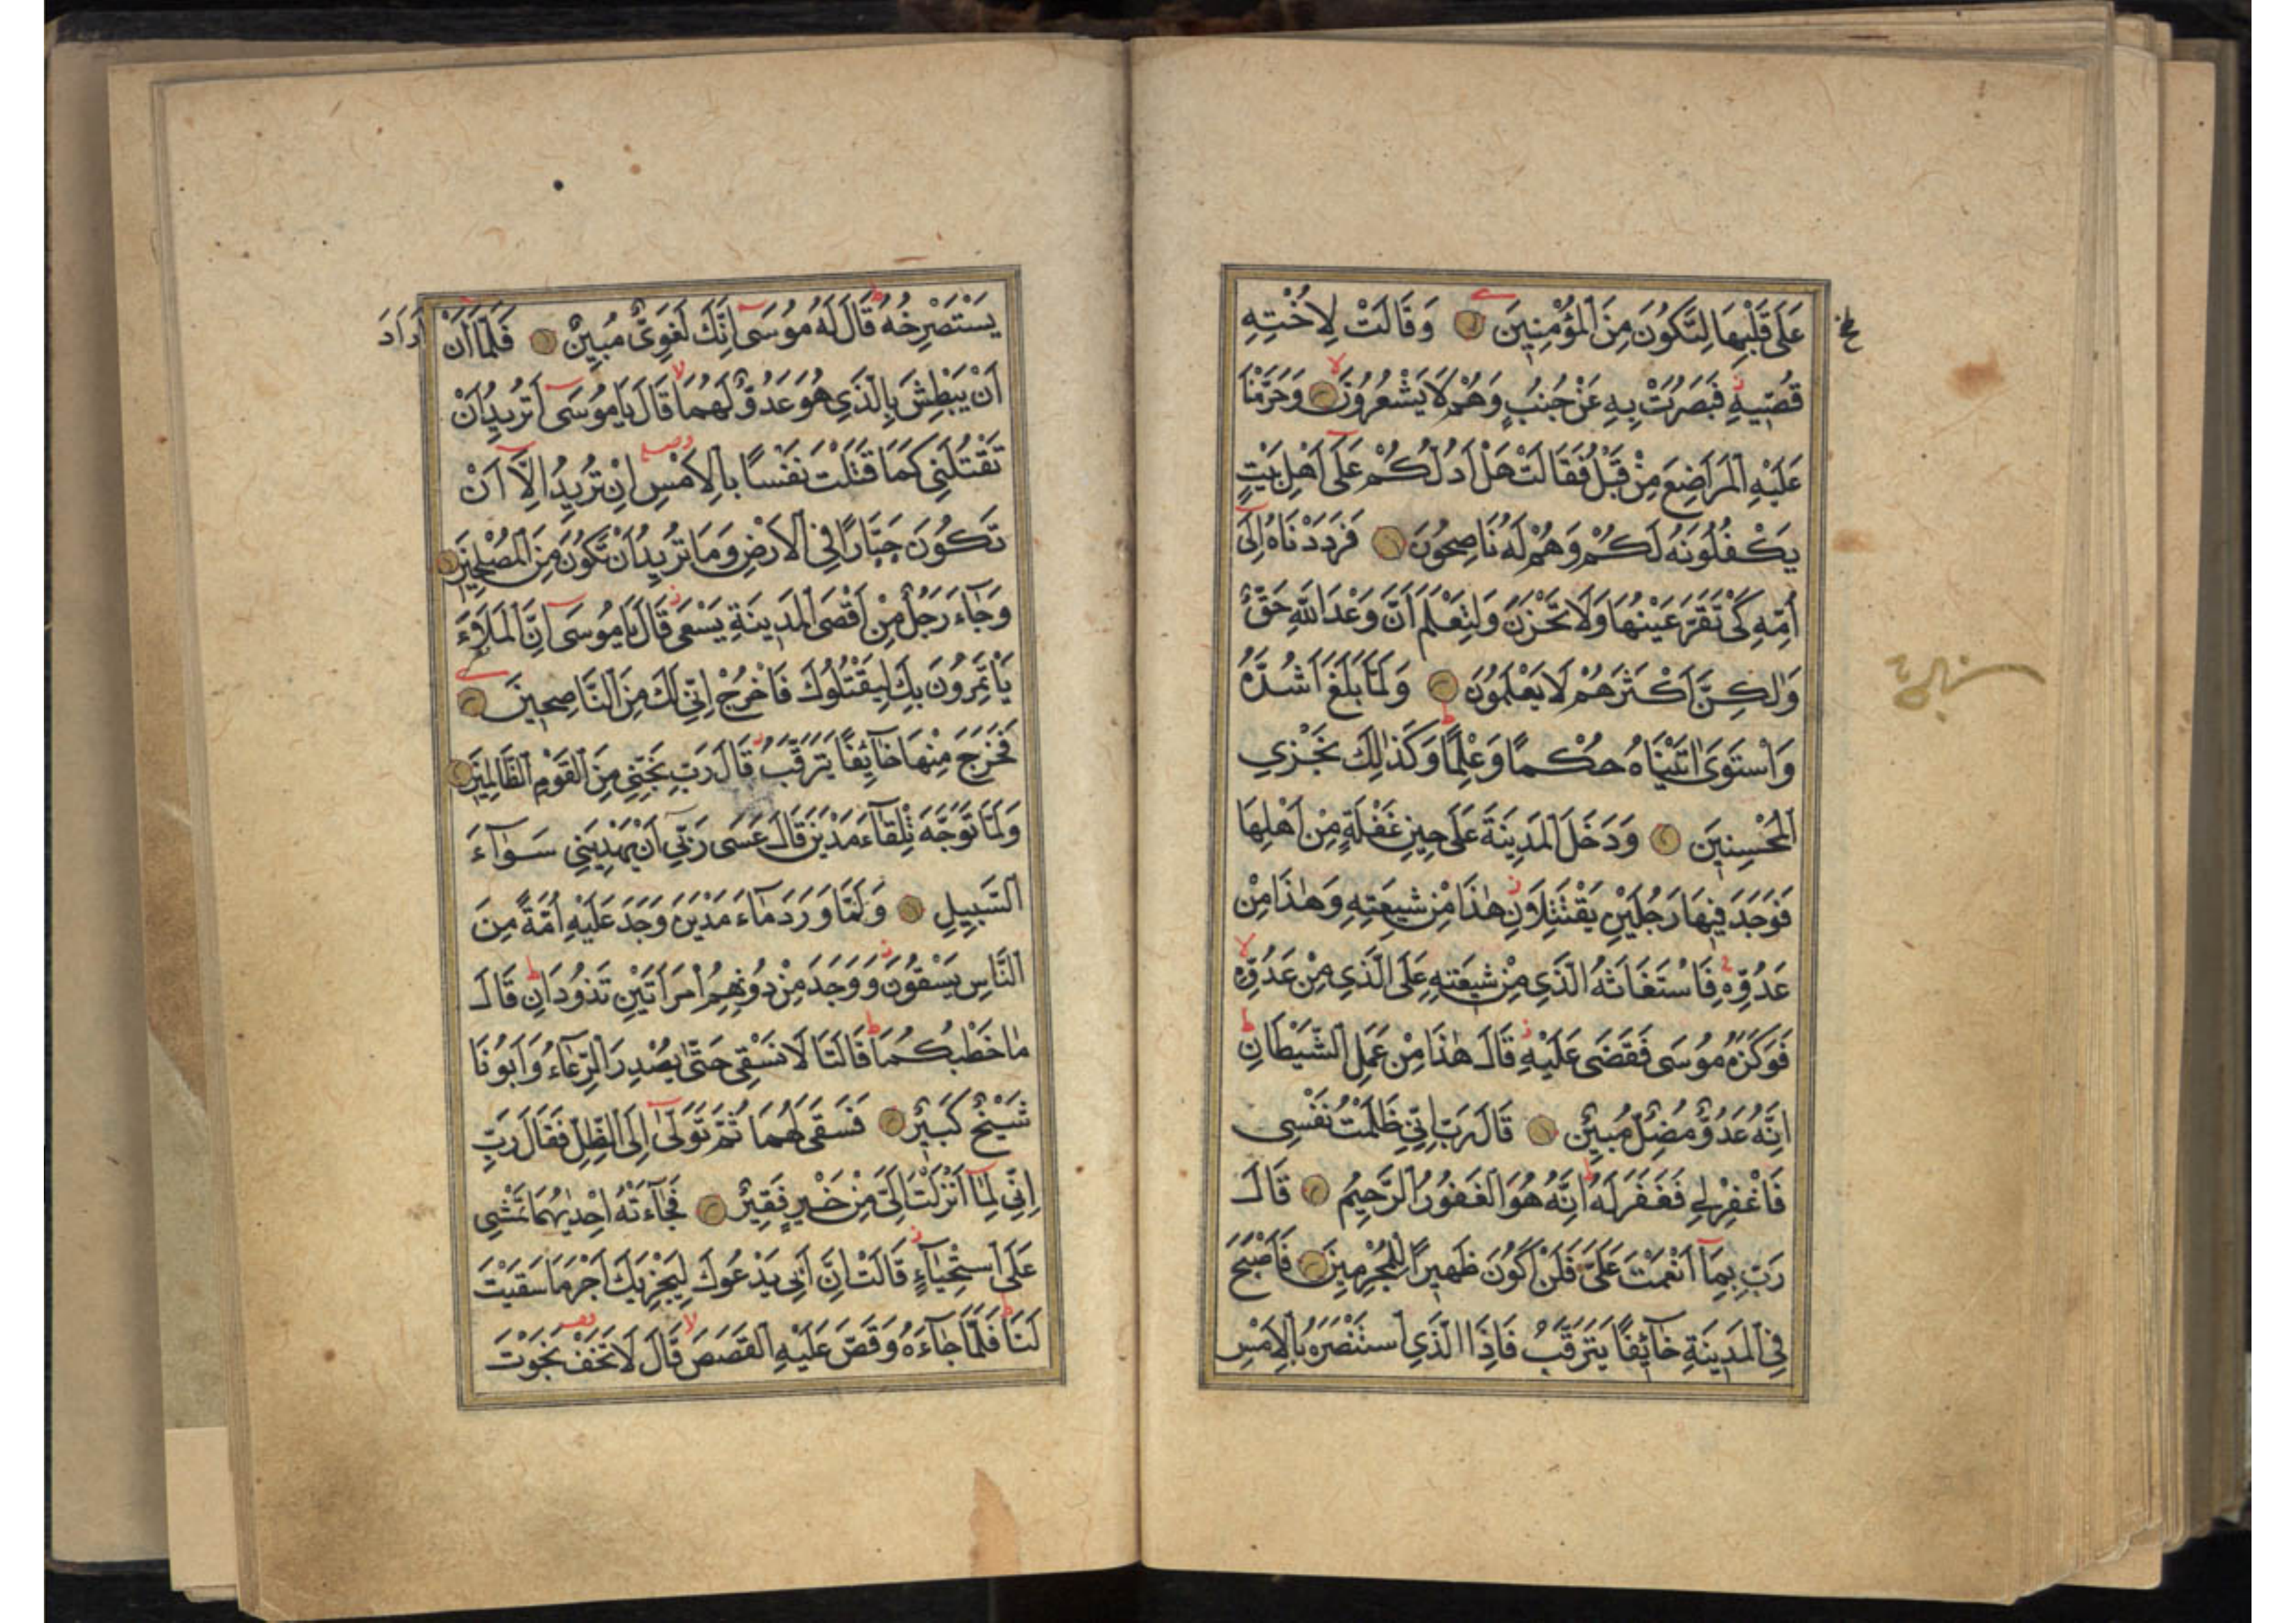 عَلَى قَلْبِهَا لِتَكُونَ مِنَ الْمُؤْمِنِينَ وَقَالَتْ لِأُخْتِهِ
قُصِّيهِ فَبَصُرَتْ بِهِ عَنْ جُنُبٍ وَهُمْ لَا يَشْعُرُونَ وَحَرَّمْنَا
عَلَيْهِ الْمَرَاضِعَ مِنْ قَبْلُ فَقَالَتْ هَلْ أَدُلُّكُمْ عَلَى أَهْلِ بَيْتٍ
يَكْفُلُونَهُ لَكُمْ وَهُمْ لَهُ نَاصِحُونَ فَرَدَدْنَاهُ إِلَى
أُمِّهِ كَيْ تَقَرَّ عَيْنُهَا وَلَا تَحْزَنَ وَلِتَعْلَمَ أَنَّ وَعْدَ اللَّهِ حَقٌّ
وَلٰكِنَّ أَكْثَرَهُمْ لَا يَعْلَمُونَ وَلَمَّا بَلَغَ أَشُدَّهُ
وَاسْتَوَى اٰتَيْنَاهُ حُكْمًا وَعِلْمًا وَكَذٰلِكَ نَجْزِي
الْمُحْسِنِينَ وَدَخَلَ الْمَدِينَةَ عَلَى حِينِ غَفْلَةٍ مِنْ أَهْلِهَا
فَوَجَدَ فِيهَا رَجُلَيْنِ يَقْتَتِلَانِ هٰذَا مِنْ شِيعَتِهِ وَهٰذَا مِنْ
عَدُوِّهِ فَاسْتَغَاثَهُ الَّذِي مِنْ شِيعَتِهِ عَلَى الَّذِي مِنْ عَدُوِّهِ
فَوَكَزَهُ مُوسَى فَقَضَى عَلَيْهِ قَالَ هٰذَا مِنْ عَمَلِ الشَّيْطَانِ
إِنَّهُ عَدُوٌّ مُضِلٌّ مُبِينٌ قَالَ رَبِّ إِنِّي ظَلَمْتُ نَفْسِي
فَاغْفِرْ لِي فَغَفَرَ لَهُ إِنَّهُ هُوَ الْغَفُورُ الرَّحِيمُ قَالَ
رَبِّ بِمَا أَنْعَمْتَ عَلَيَّ فَلَنْ أَكُونَ ظَهِيرًا لِلْمُجْرِمِينَ فَأَصْبَحَ
فِي الْمَدِينَةِ خَائِفًا يَتَرَقَّبُ فَإِذَا الَّذِي اسْتَنْصَرَهُ بِالْأَمْسِ
يَسْتَصْرِخُهُ قَالَ لَهُ مُوسَى إِنَّكَ لَغَوِيٌّ مُبِينٌ فَلَمَّا أَنْ أَرَادَ
أَنْ يَبْطِشَ بِالَّذِي هُوَ عَدُوٌّ لَهُمَا قَالَ يَا مُوسَى أَتُرِيدُ أَنْ
تَقْتُلَنِي كَمَا قَتَلْتَ نَفْسًا بِالْأَمْسِ إِنْ تُرِيدُ إِلَّا أَنْ
تَكُونَ جَبَّارًا فِي الْأَرْضِ وَمَا تُرِيدُ أَنْ تَكُونَ مِنَ الْمُصْلِحِينَ
وَجَاءَ رَجُلٌ مِنْ أَقْصَى الْمَدِينَةِ يَسْعَى قَالَ يَا مُوسَى إِنَّ الْمَلَأَ
يَأْتَمِرُونَ بِكَ لِيَقْتُلُوكَ فَاخْرُجْ إِنِّي لَكَ مِنَ النَّاصِحِينَ
فَخَرَجَ مِنْهَا خَائِفًا يَتَرَقَّبُ قَالَ رَبِّ نَجِّنِي مِنَ الْقَوْمِ الظَّالِمِينَ
وَلَمَّا تَوَجَّهَ تِلْقَاءَ مَدْيَنَ قَالَ عَسَى رَبِّي أَنْ يَهْدِيَنِي سَوَاءَ
السَّبِيلِ وَلَمَّا وَرَدَ مَاءَ مَدْيَنَ وَجَدَ عَلَيْهِ أُمَّةً مِنَ
النَّاسِ يَسْقُونَ وَوَجَدَ مِنْ دُونِهِمُ امْرَأَتَيْنِ تَذُودَانِ قَالَ
مَا خَطْبُكُمَا قَالَتَا لَا نَسْقِي حَتَّى يُصْدِرَ الرِّعَاءُ وَأَبُونَا
شَيْخٌ كَبِيرٌ فَسَقَى لَهُمَا ثُمَّ تَوَلَّى إِلَى الظِّلِّ فَقَالَ رَبِّ
إِنِّي لِمَا أَنْزَلْتَ إِلَيَّ مِنْ خَيْرٍ فَقِيرٌ فَجَاءَتْهُ إِحْدٰيهُمَا تَمْشِي
عَلَى اسْتِحْيَاءٍ قَالَتْ إِنَّ أَبِي يَدْعُوكَ لِيَجْزِيَكَ أَجْرَ مَا سَقَيْتَ
لَنَا فَلَمَّا جَاءَهُ وَقَصَّ عَلَيْهِ الْقَصَصَ قَالَ لَا تَخَفْ نَجَوْتَ